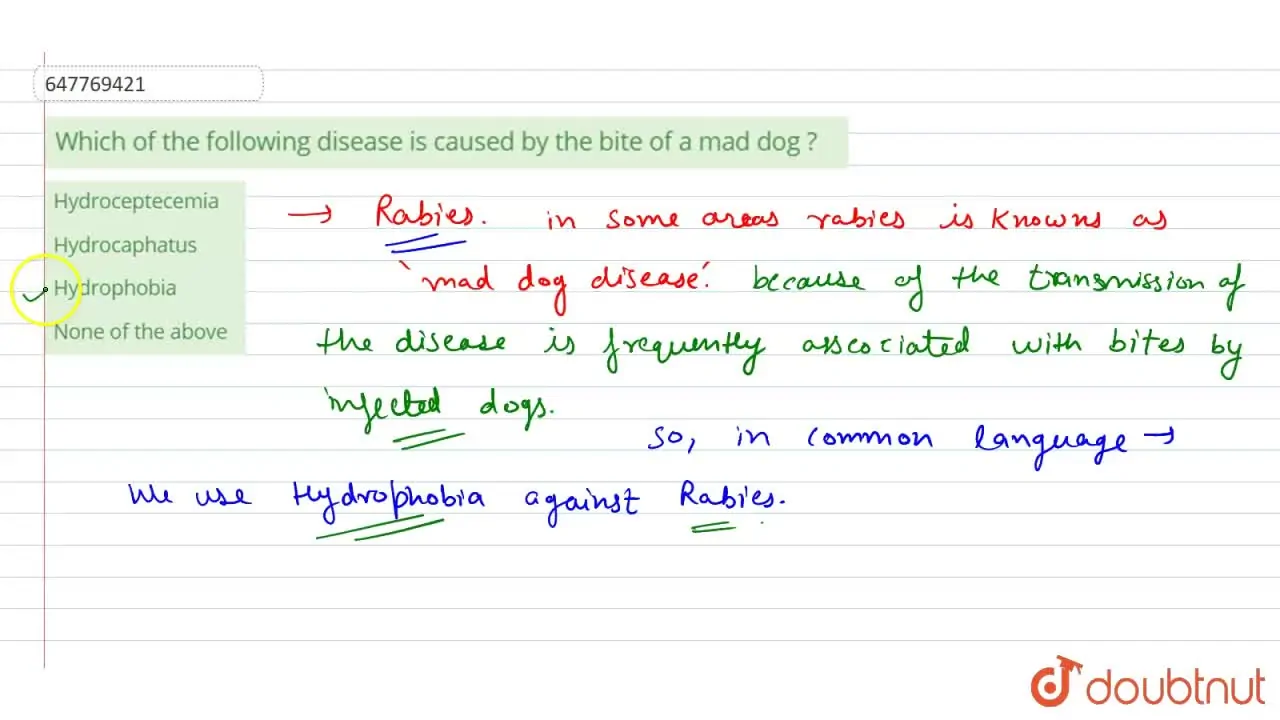 647769421
Which of the following disease is caused by the bite of a mad dog ?
Hydroceptecemia
Hydrocaphatus
Hydrophobia
None of the above
→ Rabies. in some areas rabies is knowns as
'mad dog disease'. because of the transmission of
the disease is frequently asscociated with bites by
infected dogs.
So, in common language →
We use Hydrophobia against Rabies.
doubtnut